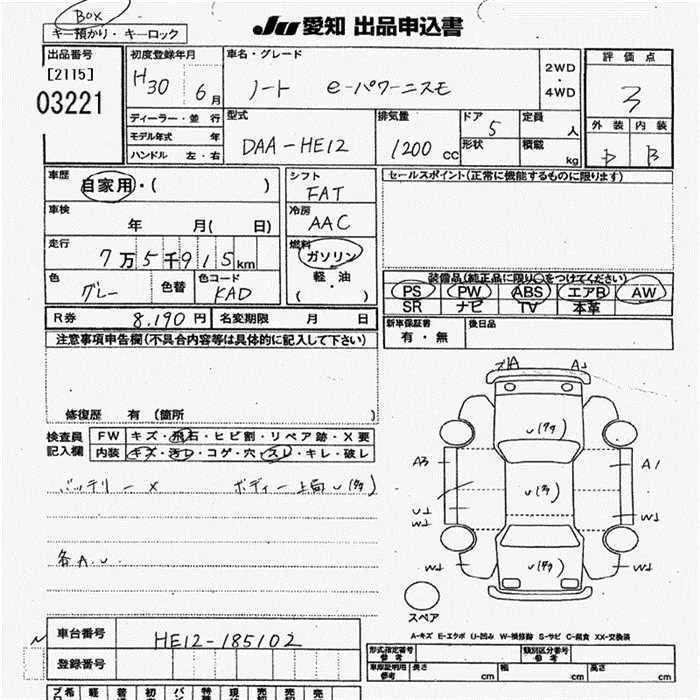 BOX
キー預かり・キーロック
JU 愛知 出品申込書
出品番号
[2115]
03221
初度登録年月
H30 6月
ディーラー・並 行
モデル年式 年
ハンドル 左・右
車名・グレード
ノート e-パワーニスモ
2WD
・
4WD
型式
DAA-HE12
排気量
1200 cc
ドア
5
形状
定員
人
積載
kg
評価点
3
外装 内装
D B
車歴
自家用・( )
車検
年 月( 日)
走行
7万5千915km
色
グレー
色替
色コード
KAD
シフト
FAT
冷房
AAC
燃料
ガソリン
軽・油
( )
セールスポイント(正常に機能するものに限ります)
装備品(純正品に限り○をつけてください)
PS PW ABS エアB AW
SR ナビ TV 本革
R券 8,190円 名変期限 月 日
新車保証書
有・無
後日品
注意事項申告欄(不具合内容等は具体的に記入して下さい)
修復歴 有 (箇所 )
検査員
記入欄
FW キズ・飛石・ヒビ割・リペア跡・X要
内装 キズ・汚レ・コゲ・穴・スレ・キレ・破レ
バッテリー × ボディー上面 U(多)
各A.U.
A A
U(多)
A3 A1
U(多)
U1
W1 W1
W1 U(多) W1
スペア
A-キズ E-エクボ U-凹み W-補修跡 S-サビ C-腐食 XX-交換済
車台番号 HE12-185102
登録番号
形式指定番号
参考
類別区分番号
参考
車庫証明用
参考
長さ cm 幅 cm 高さ cm